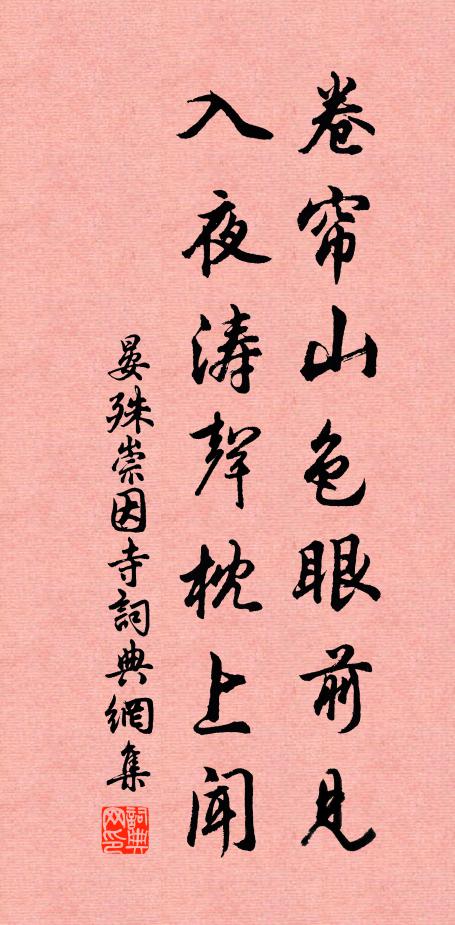 卷帘山色眼前見
入夜涛聲枕上聞
晏殊崇因寺詞典網集
詞典网印